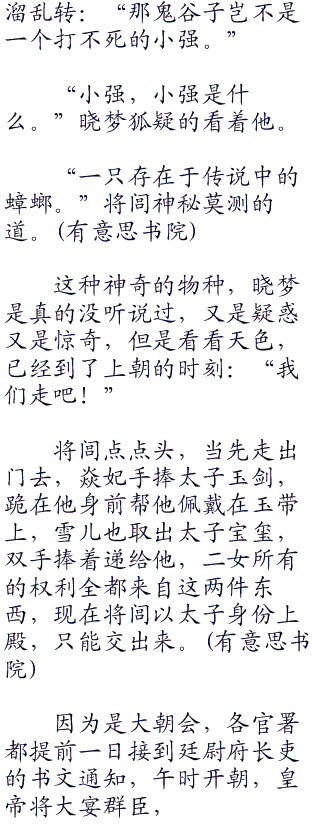 溜乱转：“那鬼谷子岂不是
一个打不死的小强。”
“小强，小强是什
么。”晓梦狐疑的看着他。
“一只存在于传说中的
蟑螂。”将闾神秘莫测的
道。(有意思书院)
这种神奇的物种，晓梦
是真的没听说过，又是疑惑
又是惊奇，但是看看天色，
已经到了上朝的时刻：“我
们走吧！”
将闾点点头，当先走出
门去，焱妃手捧太子玉剑，
跪在他身前帮他佩戴在玉带
上，雪儿也取出太子宝玺，
双手捧着递给他，二女所有
的权利全都来自这两件东
西，现在将闾以太子身份上
殿，只能交出来。(有意思书
院)
因为是大朝会，各官署
都提前一日接到廷尉府长吏
的书文通知，午时开朝，皇
帝将大宴群臣，